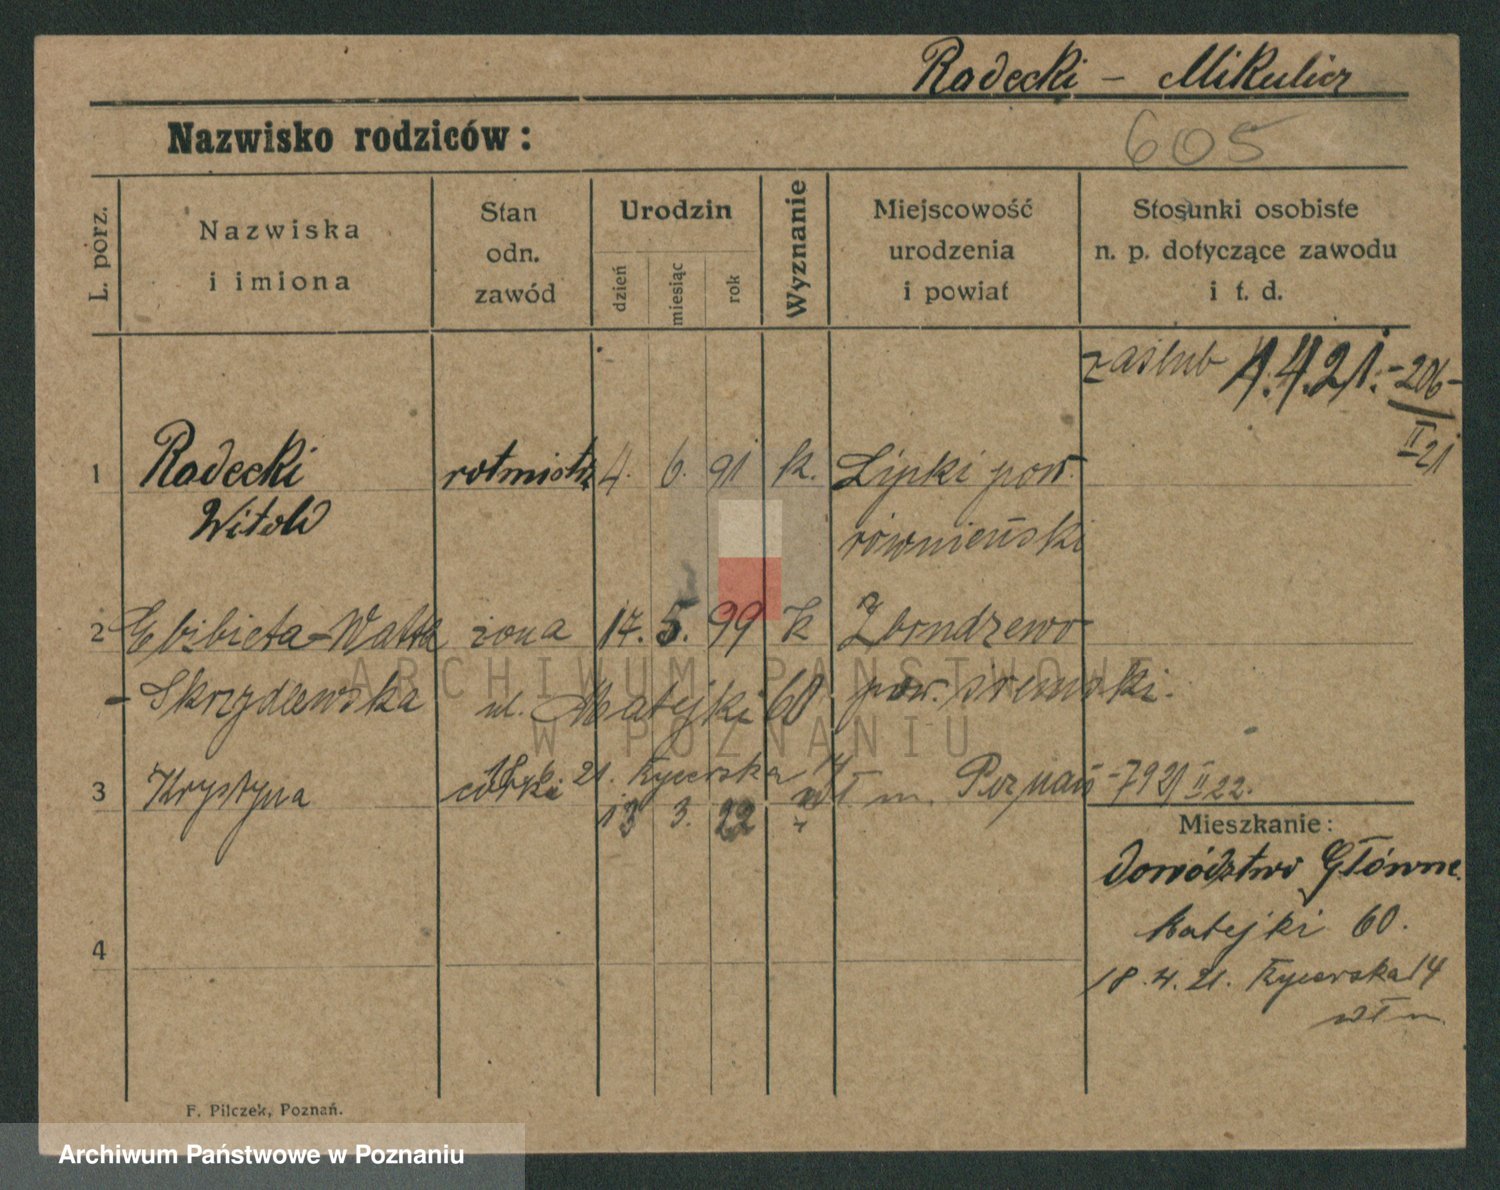 Radecki – Mikulicz
Nazwisko rodziców:
605
L. porz.
Nazwiska
i imiona
Stan
odn.
zawód
Urodzin
dzień
miesiąc
rok
Wyznanie
Miejscowość
urodzenia
i powiat
Stosunki osobiste
n. p. dotyczące zawodu
i t. d.
zaślub 1.4.21. – 206 –
II
21
1 Radecki rotmistrz 4. 6. 91 k. Lipki pow.
Witold rówieński
2 Elżbieta – żona 17. 5. 99 k
– Skrzydlewska ul. Matejki 60 pow. śremski.
21. Rycerska 14
3 Krystyna córka wł m. Poznań – 7921 II 22.
13 3. 22
Mieszkanie:
Dowództwo Główne.
Matejki 60.
18.4.21. Rycerska 14
wł m
4
F. Pilczek, Poznań.
ARCHIWUM PAŃSTWOWE
W POZNANIU
Archiwum Państwowe w Poznaniu